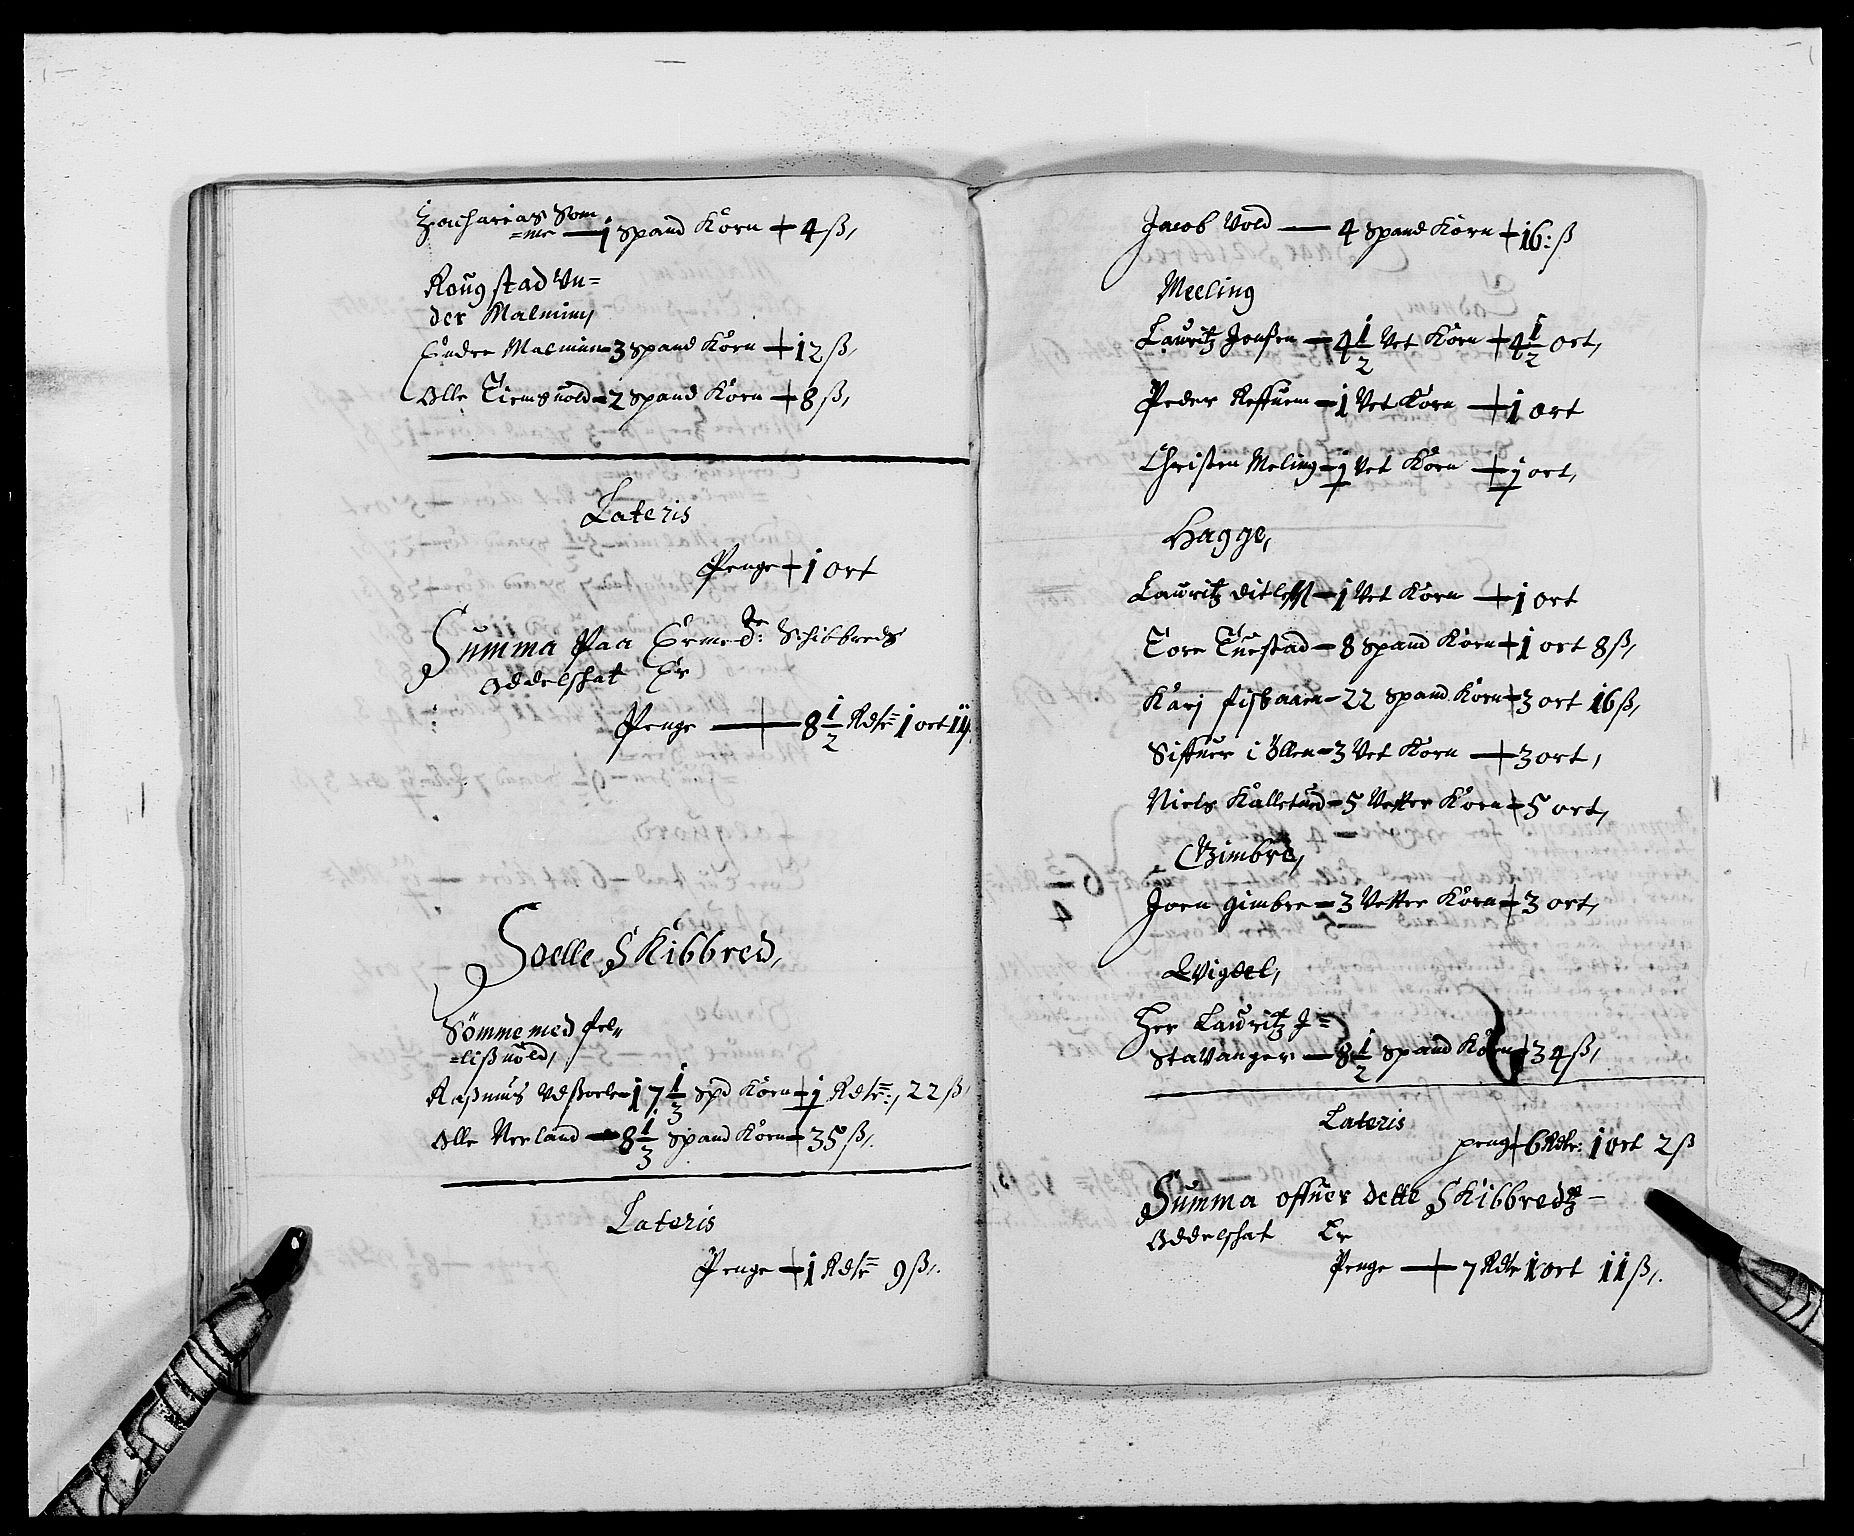 Zacharias Som
=me — 1 Spand Korn + 4 ß,
Rougstad Un=
der Malmim,
Endre Malmim - 3 Spand Korn + 12 ß,
Olle Tiemsuold - 2 Spand Korn + 8 ß,
Lateris
Penge + 1 ort
Summa Paa Ermed:te Schibbreds
Oddelschat Er
Penge — 8 1/2 Rdlr 1 ort
Soelle Skibbred,
Sömme med fel=
=lißuold,
Raßmus Udßoele - 17 1/3 Spd Korn + 1 Rdlr:, 22 ß,
Olle Nerland - 8 1/3 Spand Korn + 35 ß,
Lateris
Penge + 1 Rdlr 9 ß,
Jacob Vold — 4 Spand Korn + 16: ß
Meeling
Lauritz Jonßen - 4 1/2 Vet Korn + 4 1/2 ort,
Peder Reffuem - 1 Vet Korn + 1 ort
Christen Meling - 1 Vet Korn + 1 ort,
Hagge,
Lauritz Ditleff - 1 Vet Korn + 1 ort
Tore Tuestad - 8 Spand Korn + 1 ort 8 ß,
Karj fiskaaen - 22 Spand Korn + 3 ort 16 ß,
Siffuer i Öllen - 3 Vet Korn + 3 ort,
Niels Kalletued - 5 Vetter Korn + 5 ort,
Gimbre,
Joen Gimbre - 3 Vetter Korn + 3 ort,
Wigdel,
Her Lauritz J=
Stavanger - 8 1/2 Spand Korn + 34 ß,
Lateris
peng + 6 Rdlr: 1 ort 2 ß
Summa offuer dette Skibbredtz
Oddelschat Er
Penge + 7 Rdlr 1 ort 11 ß,